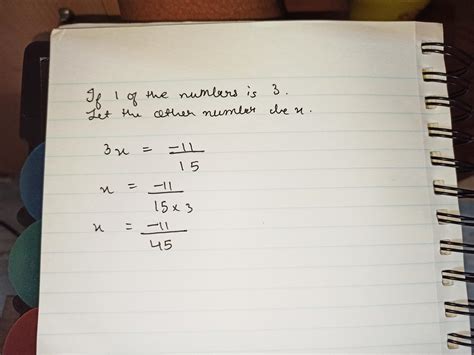 If 1 of the numbers is 3.
Let the other number be x.
3x = -11/15
x = -11/15×3
x = -11/45